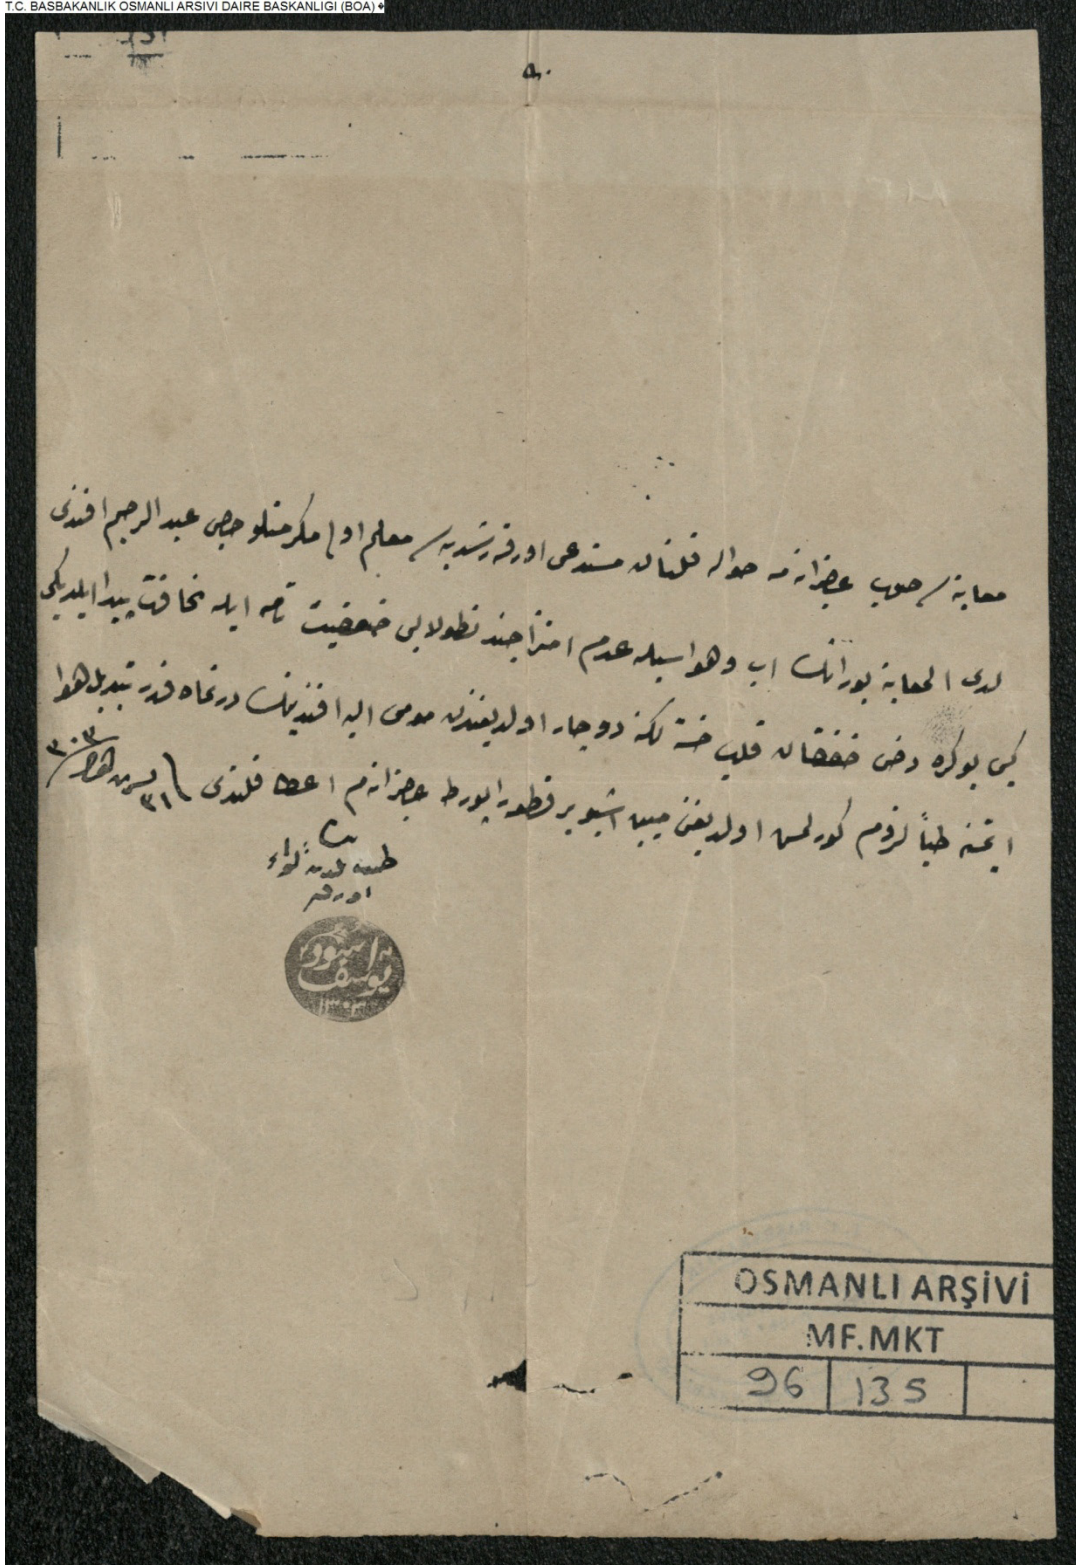 T.C. BASBAKANLIK OSMANLI ARSIVI DAIRE BASKANLIGI (BOA)
معاینه سی صوب عاجزانه مه حواله قلنان مستدعی اورفه رشدیه سی معلم اولی مکرمتلو حاجی عبد الرحیم افندی
لدی المعاینه بورانك اب وهواسیله عدم امتزاجندن طولایی ضعفیت تامه ایله نحافت پیدا ایلدیکی
کبی بو کره دخی خفقان قلب خسته لکنه دوچار اولدیغندن مومی الیه افندینك درت ماه قدر تبدیل هوا
ایتمسنه طباً لزوم کورلمش اولدیغنی مبین اشبو بر قطعه راپورط عاجزانه م اعطا قلندی
٣١
٣٠٣
طبیب بلدیه لواء
اورفه
یوسف
١٣٠٣
OSMANLI ARŞİVİ
MF.MKT
96 135